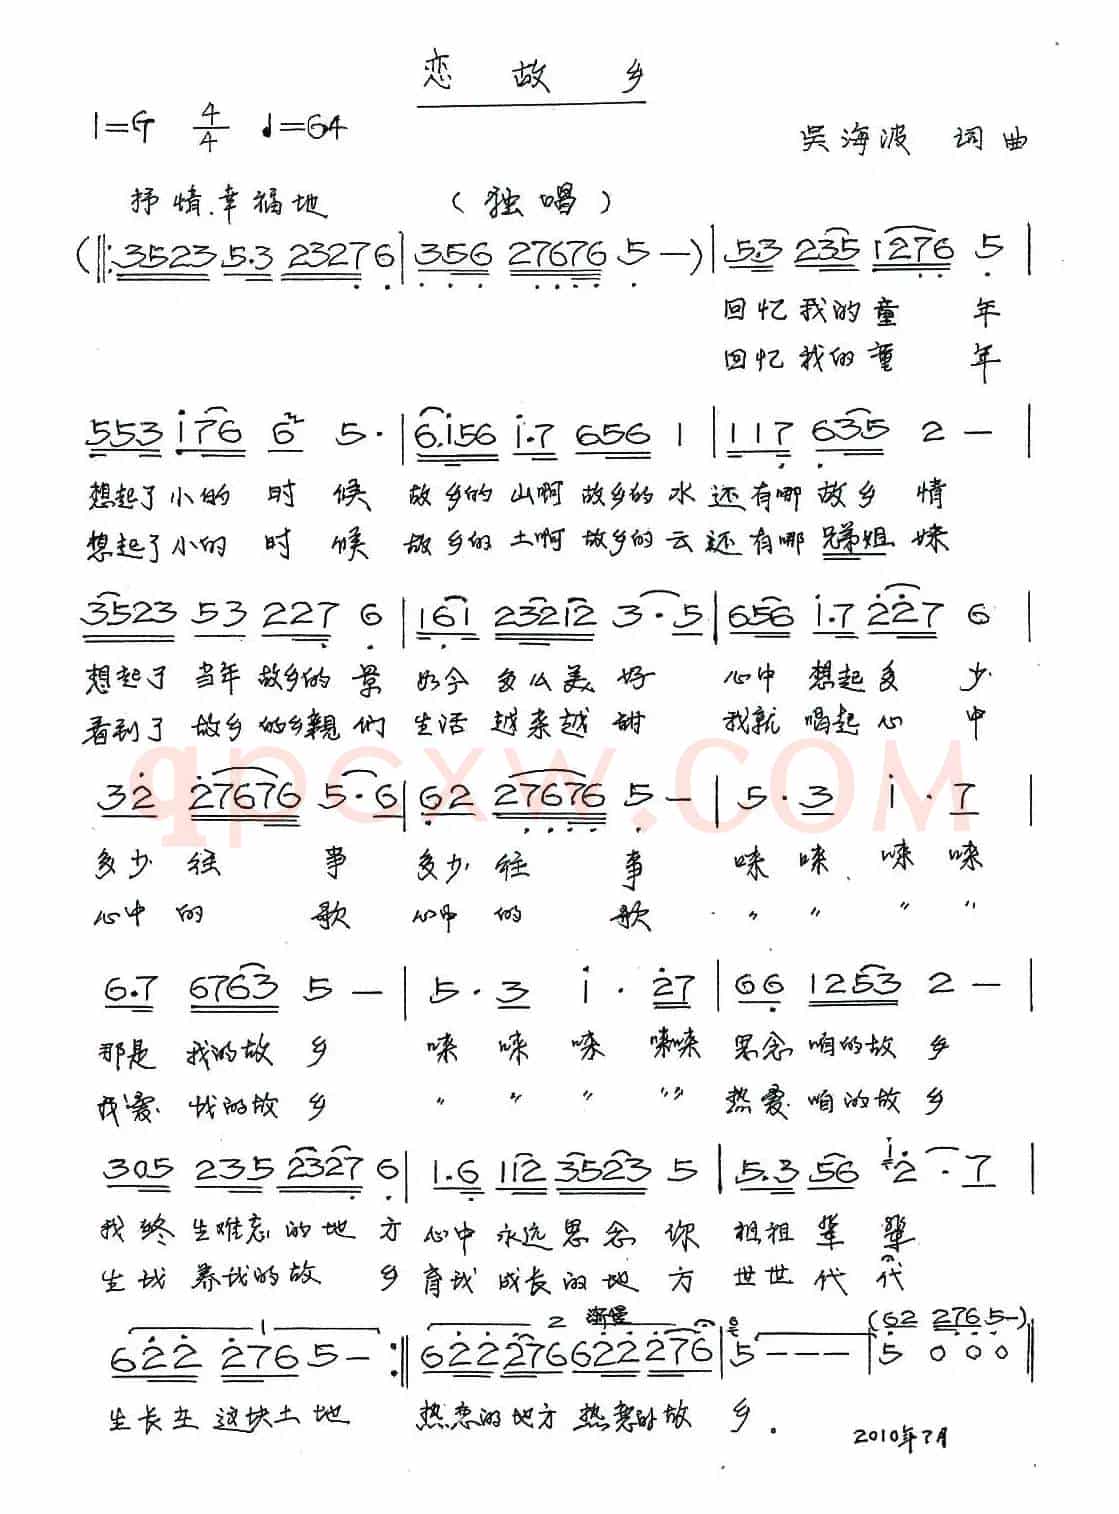 恋故乡
1=G 4/4 ♩=64
吴海波 词曲
抒情.幸福地 (独唱)
(‖: 3523 5.3 23276 | 356 27676 5 — ) | 5.3 235 1276 5 |
回忆我的童年
回忆我的童年
553 176 6 5. | 6.156 1.7 656 1 | 117 635 2 — |
想起了小的时候 故乡的山啊 故乡的水 还有哪故乡情
想起了小的时候 故乡的土啊 故乡的云 还有哪兄弟姐妹
3523 53 227 6 | 161 23212 3.5 | 656 1.7 227 6 |
想起了当年故乡的景 如今多么美好 心中想起多少
看到了故乡的乡親们 生活越来越甜 我就唱起心中
qpcxw.COM
32 27676 5.6 | 62 27676 5 — | 5.3 1.7 |
多少往事 多少往事 唻唻唻唻
心中的歌 心中的歌 〃 〃 〃 〃
6.7 6763 5 — | 5.3 1.27 | 66 1253 2 — |
那是我的故乡 唻唻唻唻唻 思念咱的故乡
我爱我的故乡 〃 〃 〃 〃〃 热爱咱的故乡
305 235 2327 6 | 1.6 112 3523 5 | 5.3 56 2.7 |
我终生难忘的地方 心中永远思念你 祖祖辈辈
生我养我的故乡 育我成长的地方 世世代代
1 2 渐慢 (62 276 5—)
622 276 5 — :‖ 622 276 622 276 | 5 — — — | 5 0 0 0 ‖
生长在这块土地 热恋的地方 热恋的故乡。
2010年7月